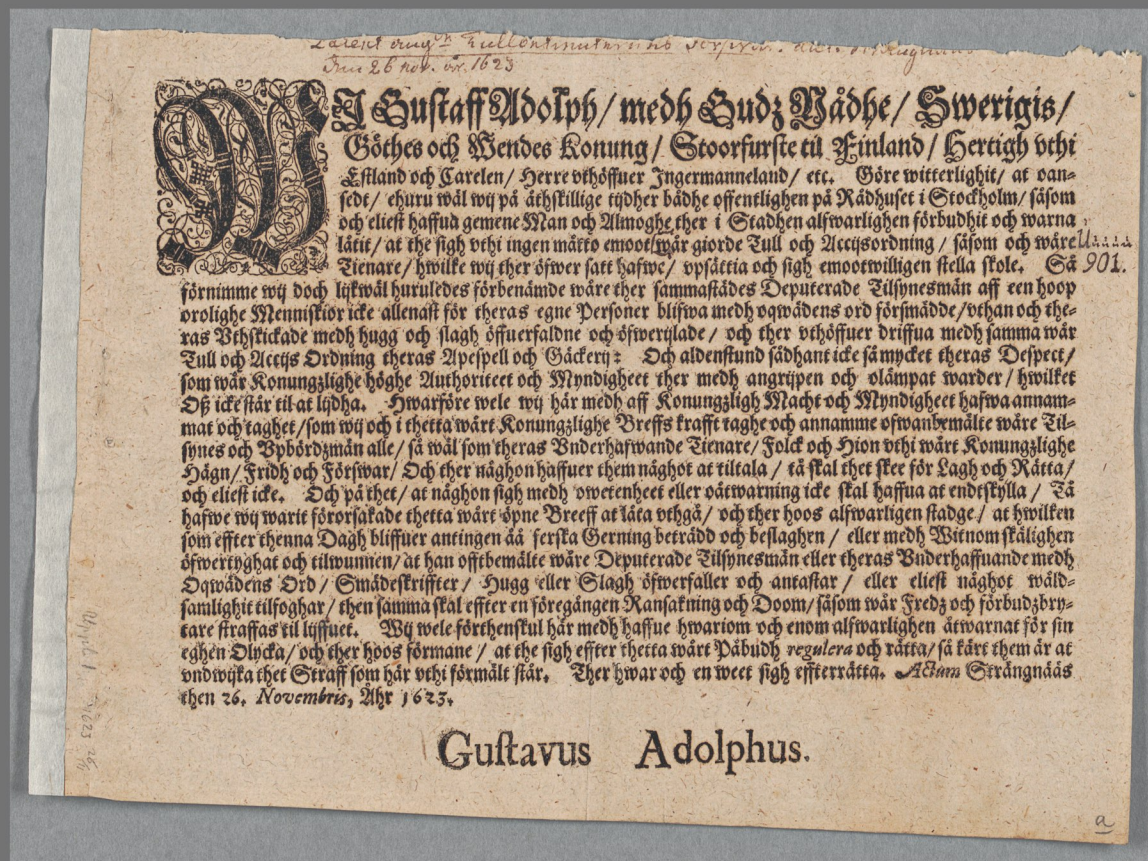 den 26 nov. 1623
WJ Gustaff Adolph/ medh Gudz Nådhe/ Swerigis/
Göthes och Wendes Konung/ Stoorfurste til Finland/ Hertigh vthi
Estland och Carelen/ Herre vthöffuer Jngermanneland/ etc. Göre witterlighit/ at oan-
sedt/ ehuru wäl wij på åthskillige tijdher bådhe offentlighen på Rådhuset i Stockholm/ såsom
och eliest haffua gemene Man och Almoghe ther i Stadhen alfwarlighen förbudhit och warna
låtit/ at the sigh vthi ingen måtto emoot wår giorde Tull och Accijsordning/ såsom och wåre
Tienare/ hwilke wij ther öfwer satt hafwe/ vpsättia och sigh emootwilligen stella skole. Så
901.
förnimme wij doch lijkwäl huruledes förbenämde wåre ther sammastädes Deputerade Tilsynesmän aff een hoop
orolighe Menniskior icke allenast för theras egne Personer blifwa medh oqwädens ord försmädde/ vthan och the-
ras Vthskickade medh hugg och slagh öffuerfaldne och öfwerijlade/ och ther vthöffuer driffua medh samma wår
Tull och Accijs Ordning theras Apespell och Gäckerij: Och aldenstund sådhant icke så mycket theras Despect/
som wår Konungzlighe höghe Authoriteet och Myndigheet ther medh angrijpen och olämpat warder/ hwilket
Oß icke står til at lijdha. Hwarföre wele wij här medh aff Konungzligh Macht och Myndigheet hafwa annam-
mat och taghet/ som wij och i thetta wårt Konungzlighe Breffs krafft taghe och annamme ofwanbemälte wåre Til-
synes och Vpbördzmän alle/ så wäl som theras Vnderhafwande Tienare/ Folck och Hion vthi wårt Konungzlighe
Hägn/ Fridh och Förswar/ Och ther någhon haffuer them någhot at tiltala/ tå skal thet skee för Lagh och Rätta/
och eliest icke. Och på thet/ at någhon sigh medh owetenheet eller oåtwarning icke skal haffua at endtskylla/ Tå
hafwe wij warit förorsakade thetta wårt öpne Breeff at låta vthgå/ och ther hoos alfwarligen stadge/ at hwilken
som effter thenna Dagh bliffuer antingen åå ferska Gerning beträdd och beslaghen/ eller medh Witnom skälighen
öfwertyghat och tilwunnen/ at han offtbemälte wåre Deputerade Tilsynesmän eller theras Vnderhaffuande medh
Oqwädens Ord/ Smädeskriffter/ Hugg eller Slagh öfwerfaller och antastar/ eller eliest någhot wåld-
samlighit tilfoghar/ then samma skal effter en föregången Ransakning och Doom/ såsom wår Fredz och förbudzbry-
tare straffas til lijffuet. Wij wele förthenskul här medh haffue hwariom och enom alfwarlighen åtwarnat för sin
eghen Olycka/ och ther hoos förmane/ at the sigh effter thetta wårt Påbudh regulera och rätta/ så kärt them är at
vndwijka thet Straff som här vthi förmält står. Ther hwar och en weet sigh effterrätta. Actum Strängnääs
then 26. Novembris, Åhr 1623.
Gustavus Adolphus.
a